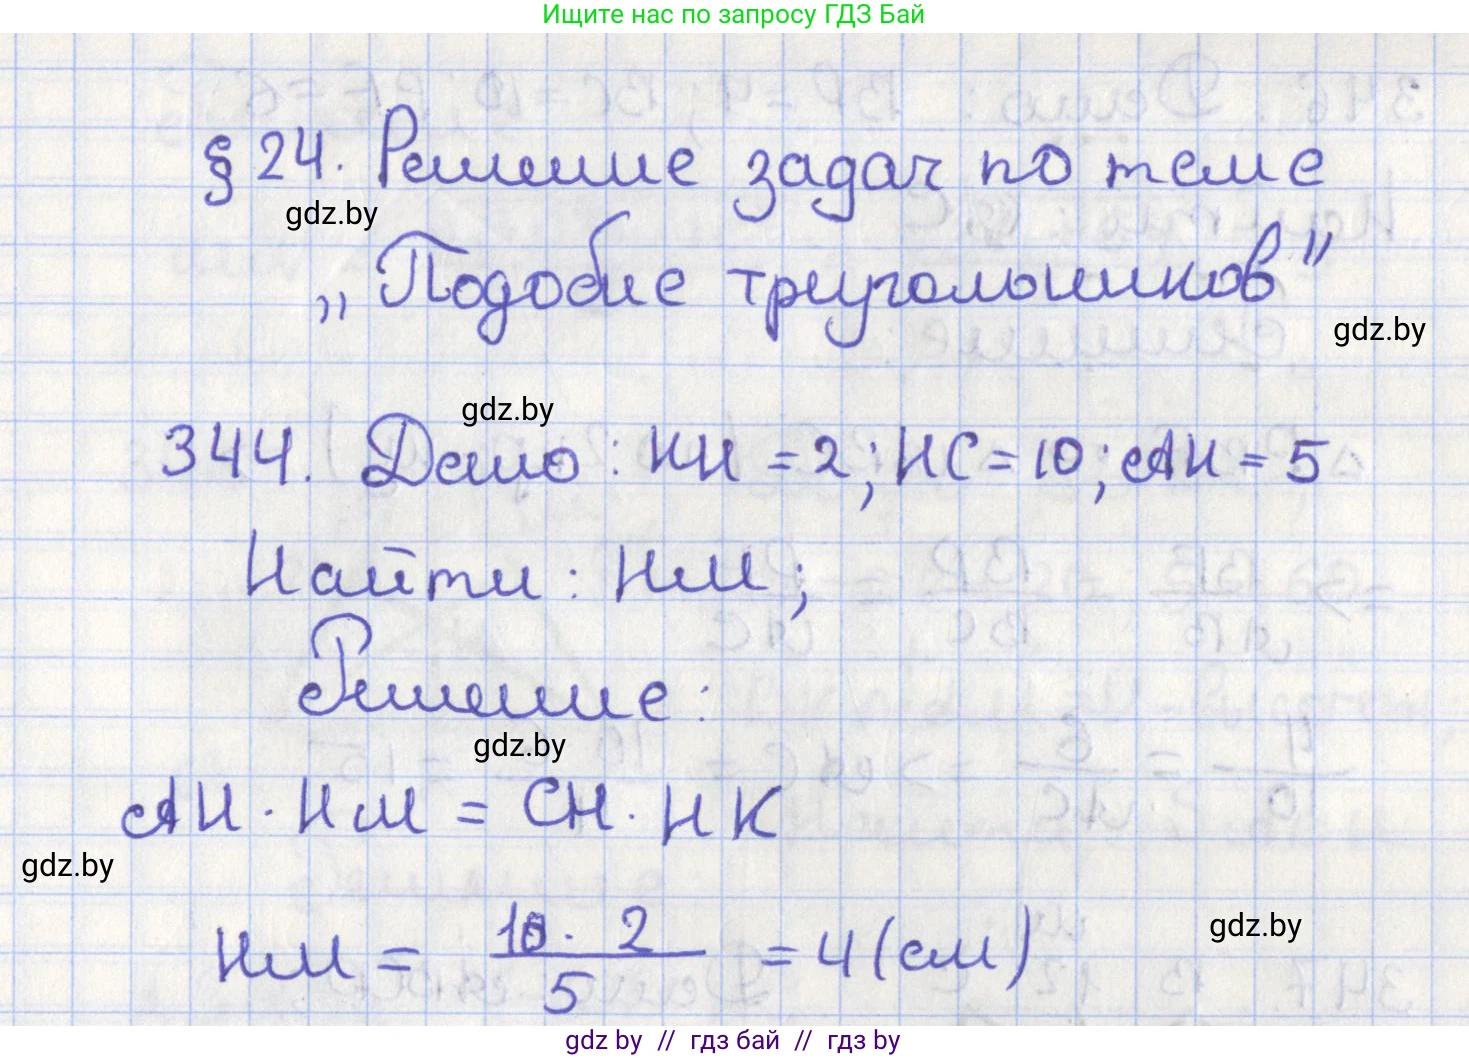 Ищите нас по запросу ГДЗ Бай
§ 24. Решение задач по теме
gdz.by
„Подобие треугольников"
gdz.by
gdz.by
344. Дано: КН = 2; НС = 10; АН = 5
Найти: НМ;
Решение:
gdz.by
АН · НМ = СН · НК
gdz.by
gdz.by
НМ = 10 · 2 / 5 = 4 (см)
gdz by // гдз бай // гдз by